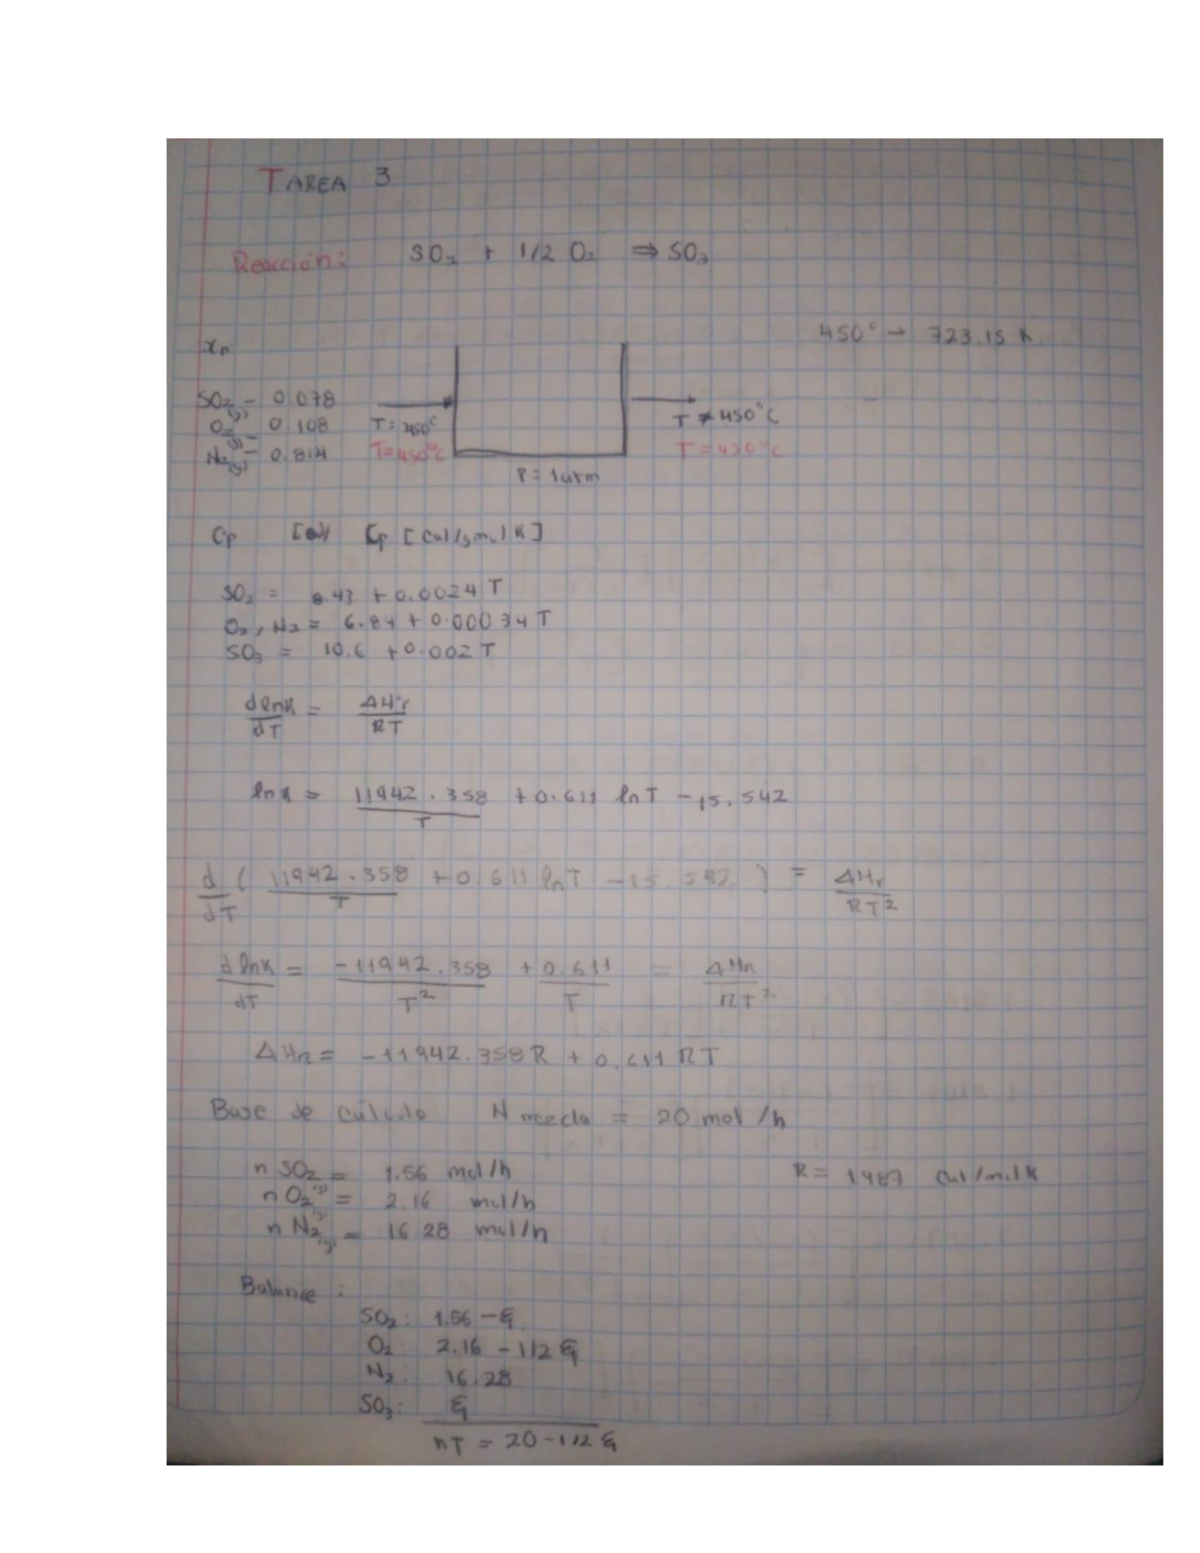 TAREA 3
Reacción: SO₂ + 1/2 O₂ ⇒ SO₃
450° → 723.15 K
xn
SO₂ - 0.078
O₂(g) - 0.108
N₂(g) - 0.814
T = 450°C
T = 450°C
T ≠ 450°C
T = 450°C
P = 1 atm
Cp Cp [Cal/gmol K]
SO₂ = 8.43 + 0.0024 T
O₂, N₂ = 6.84 + 0.00034 T
SO₃ = 10.6 + 0.002 T
dlnK/dT = ΔH°r/RT
lnK = 11942.358/T + 0.611 lnT - 15.542
d/dT ( 11942.358/T + 0.611 lnT - 15.542 ) = ΔHr/RT²
dlnK/dT = -11942.358/T² + 0.611/T = ΔHr/RT²
ΔHr = -11942.358R + 0.611 RT
Base de cálculo N mezcla = 20 mol/h
n SO₂(g) = 1.56 mol/h
R = 1987 Cal/molK
n O₂(g) = 2.16 mol/h
n N₂(g) = 16.28 mol/h
Balance:
SO₂: 1.56 - ξ
O₂: 2.16 - 1/2 ξ
N₂: 16.28
SO₃: ξ
nT = 20 - 1/2 ξ